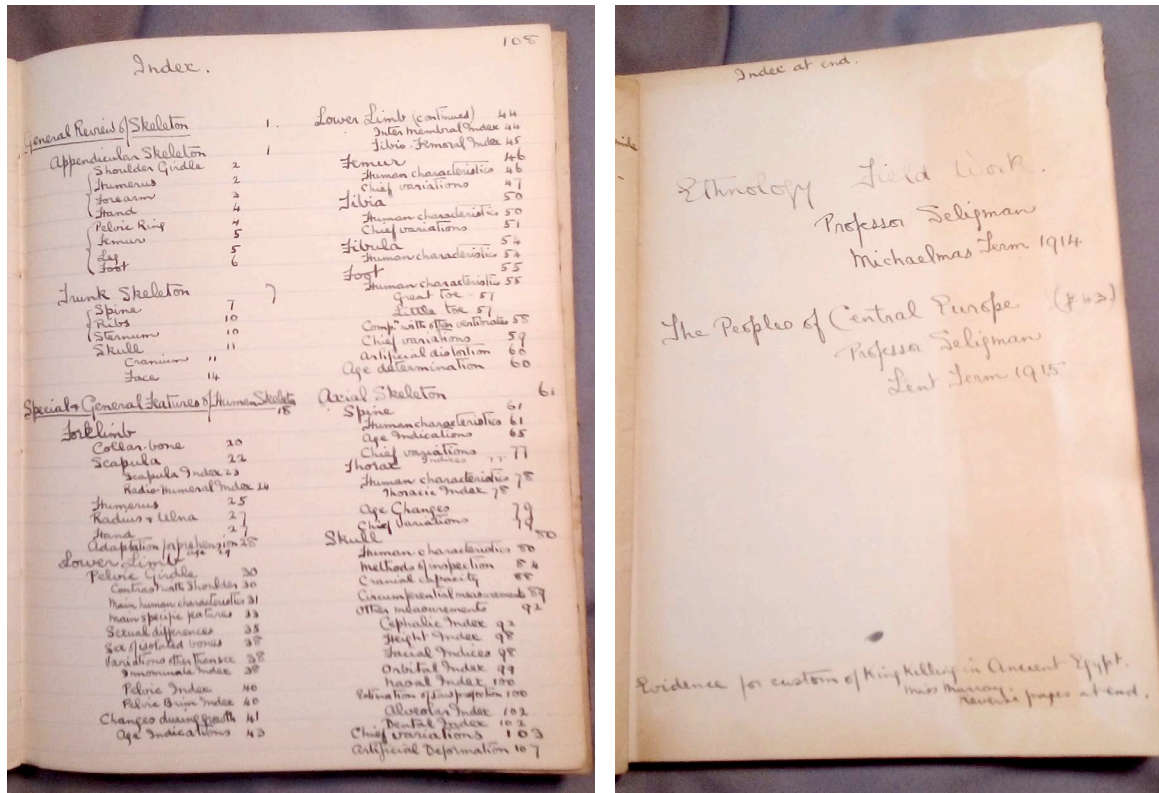 108
Index.
General Review of Skeleton 1.
Appendicular Skeleton 1
Shoulder Girdle 2
Humerus 2
Forearm 3
Hand 4
Pelvic Ring 4
Femur 5
Leg 5
Foot 6
Trunk Skeleton 7
Spine 7
Ribs 10
Sternum 10
Skull 11
Cranium 11
Face 14
Special & General Features of Human Skeleton 18
Forelimb
Collar-bone 20
Scapula 22
Scapula Index 23
Radio-Humeral Index 24
Humerus 25
Radius & Ulna 27
Hand 27
Adaptation for prehension 28
age 29
Lower Limb
Pelvic Girdle 30
Contrast with Shoulder 30
Main human characteristics 31
Main specific features 33
Sexual differences 35
Sex of isolated bones 38
Variations other than sex 38
Innominate Index 38
Pelvic Index 40
Pelvic Brim Index 40
Changes during growth 41
Age Indications 43
Lower Limb (continued) 44
Inter Membral Index 44
Tibio-Femoral Index 45
Femur 46
Human characteristics 46
Chief variations 47
Tibia 50
Human characteristics 50
Chief variations 51
Fibula 54
Human characteristics 54
Foot 55
Human characteristics 55
Great toe 57
Little toe 57
Compn. with other vertebrates 58
Chief variations 59
Artificial distortion 60
Age determination 60
Axial Skeleton 61
Spine 61
Human characteristics 61
Age Indications 65
Chief variations 77
Indices
Thorax
Human characteristics 78
Thoracic Index 78
Age Changes 79
Chief Variations 79
Skull 80
Human characteristics 80
Methods of inspection 84
Cranial capacity 88
Circumferential measurements 89
Other measurements 92
Cephalic Index 92
Height Index 98
Facial Indices 98
Orbital Index 99
Nasal Index 100
Estimation of jaw projection 100
Alveolar Index 102
Dental Index 102
Chief variations 103
Artificial Deformation 107
Index at end.
Ethnology Field Work.
Professor Seligman
Michaelmas Term 1914
The Peoples of Central Europe (p 43)
Professor Seligman
Lent Term 1915
Evidence for custom of King Killing in Ancient Egypt.
Miss Murray.
reverse pages at end.